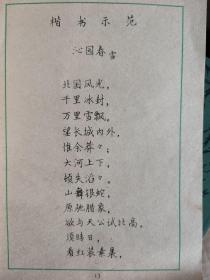 楷书示范
沁园春雪
北国风光，
千里冰封，
万里雪飘。
望长城内外，
惟余莽々；
大河上下，
顿失滔々。
山舞银蛇，
原驰腊象，
欲与天公试比高。
须晴日，
看红装素裹，
13